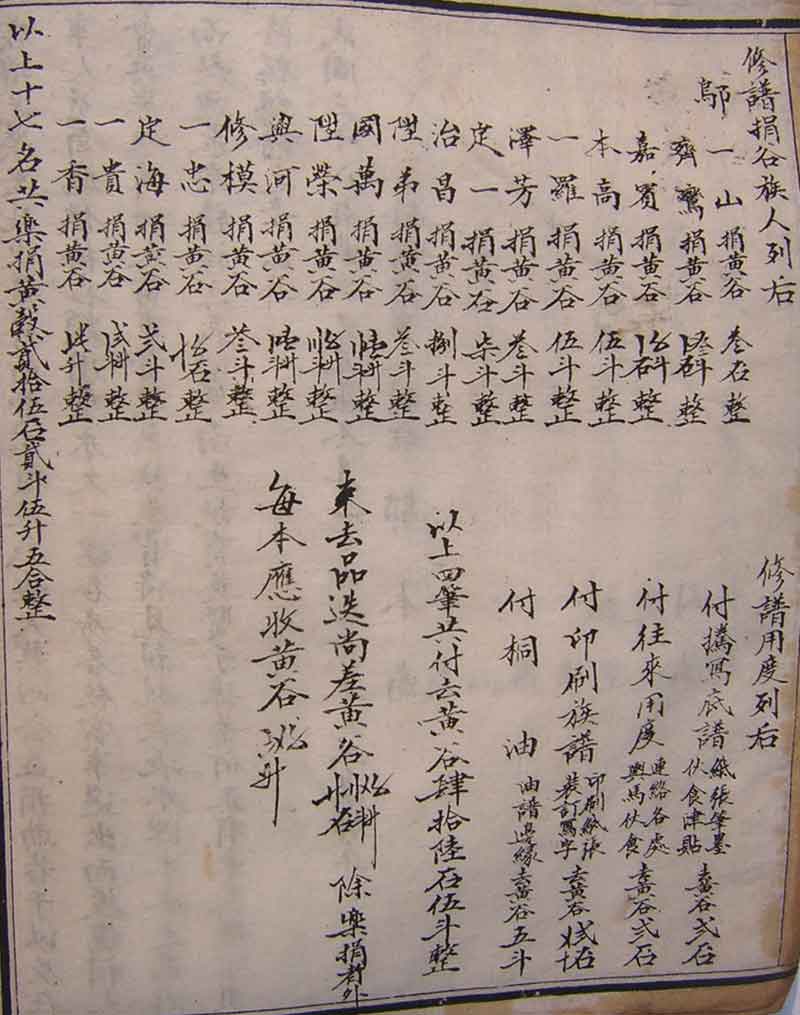 修譜捐谷族人列后
鄔一山捐黃谷叁石整
齊鸞捐黃谷整
嘉賓捐黃谷整
本高捐黃谷伍斗整
一羅捐黃谷伍斗整
澤芳捐黃谷叁斗整
定一捐黃谷柒斗整
治昌捐黃谷捌斗整
陞弟捐黃谷叁斗整
國萬捐黃谷整
陞榮捐黃谷整
興河捐黃谷整
修模捐黃谷叁斗整
一忠捐黃谷整
定海捐黃谷弍斗整
一貴捐黃谷整
一香捐黃谷整
以上十七名共樂捐黃穀貳拾伍石貳斗伍升五合整
修譜用度列后
付擕寫底譜 紙張筆墨伙食津貼 去黃谷弍石
付往來用度 連絡各處輿馬伙食 去黃谷弍石
付印刷族譜 印刷紙張裝訂寫字 去黃谷
付桐油 油譜邊緣 去黃谷五斗
以上四筆共付去黃谷肆拾陸石伍斗整
來去品迭尚差黃谷 除樂捐者外
每本應收黃谷升